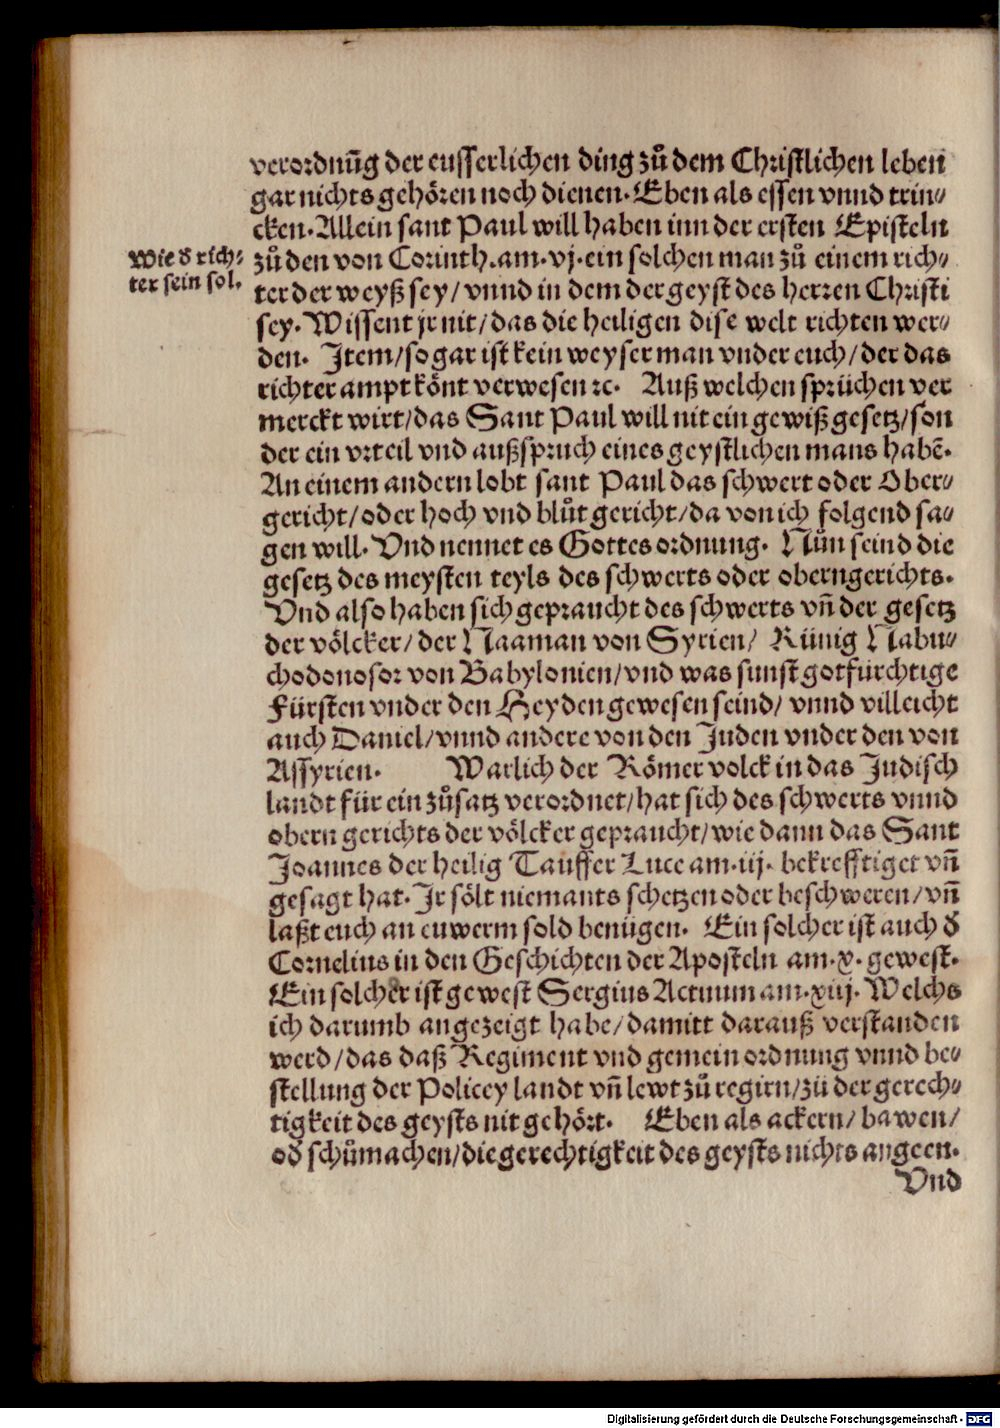 verordnūg der eusserlichen ding zů dem Christlichen leben
gar nichts gehören noch dienen. Eben als essen vnnd trin⸗
cken. Allein sant Paul will haben inn der ersten Episteln
Wie d̕ rich⸗
ter sein sol.
zů den von Corinth. am. vj. ein solchen man zů einem rich⸗
ter der weyß sey/ vnnd in dem der geyst des herren Christi
sey. Wissent jr nit/ das die heiligen dise welt richten wer⸗
den. Jtem/ so gar ist kein weyser man vnder euch/ der das
richter ampt könt verwesen ꝛc. Auß welchen sprüchen ver
merckt wirt/ das Sant Paul will nit ein gewiß gesetz/ son
der ein vrteil vnd außspruch eines geystlichen mans habē.
An einem andern lobt sant Paul das schwert oder Ober⸗
gericht/ oder hoch vnd blůt gericht/ da von ich folgend sa⸗
gen will. Vnd nennet es Gottes ordnung. Nůn seind die
gesetz des meysten teyls des schwerts oder oberngerichts.
Vnd also haben sich gepraucht des schwerts vñ der gesetz
der völcker/ der Naaman von Syrien/ Künig Nabu⸗
chodonosor von Babylonien/ vnd was sunst gotfürchtige
Fürsten vnder den Heyden gewesen seind/ vnnd villeicht
auch Daniel/ vnnd andere von den Juden vnder den von
Assyrien. Warlich der Römer volck in das Judisch
landt für ein zůsatz verordnet/ hat sich des schwerts vnnd
obern gerichts der völcker gepraucht/ wie dann das Sant
Joannes der heilig Tauffer Luce am. iij. bekrefftiget vñ
gesagt hat. Jr sölt niemants schetzen oder beschweren/ vñ
laßt euch an euwerm sold benügen. Ein solcher ist auch d̕
Cornelius in den Geschichten der Aposteln am. x. gewest.
Ein solcher ist gewest Sergius Actuum am. xiij. Welchs
ich darumb angezeigt habe/ damitt darauß verstanden
werd/ das daß Regiment vnd gemein ordnung vnnd be⸗
stellung der Policey landt vñ lewt zů regirn/ zů der gerech⸗
tigkeit des geysts nit gehört. Eben als ackern/ bawen/
od̕ schůmachen/ die gerechtigkeit des geysts nichts angeen.
Vnd
Digitalisierung gefördert durch die Deutsche Forschungsgemeinschaft - DFG